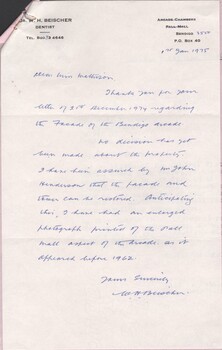 Dr. W. H. BEISCHER
DENTIST
TEL. BGO. 3 4646
ARCADE-CHAMBERS
PALL-MALL
BENDIGO 3550
P.O. BOX 40
1st Jan 1975
Dear Miss Mathison
Thank you for your
letter of 3rd December 1974 regarding
the Facade of the Bendigo arcade
No decision has yet
been made about the property.
I have been assured by Mr John
Henderson that the facade and
tower can be restored. Anticipating
this, I have had an enlarged
photograph printed of the Pall
Mall aspect of the Arcade as it
appeared before 1962.
Yours Sincerely
W H Beischer